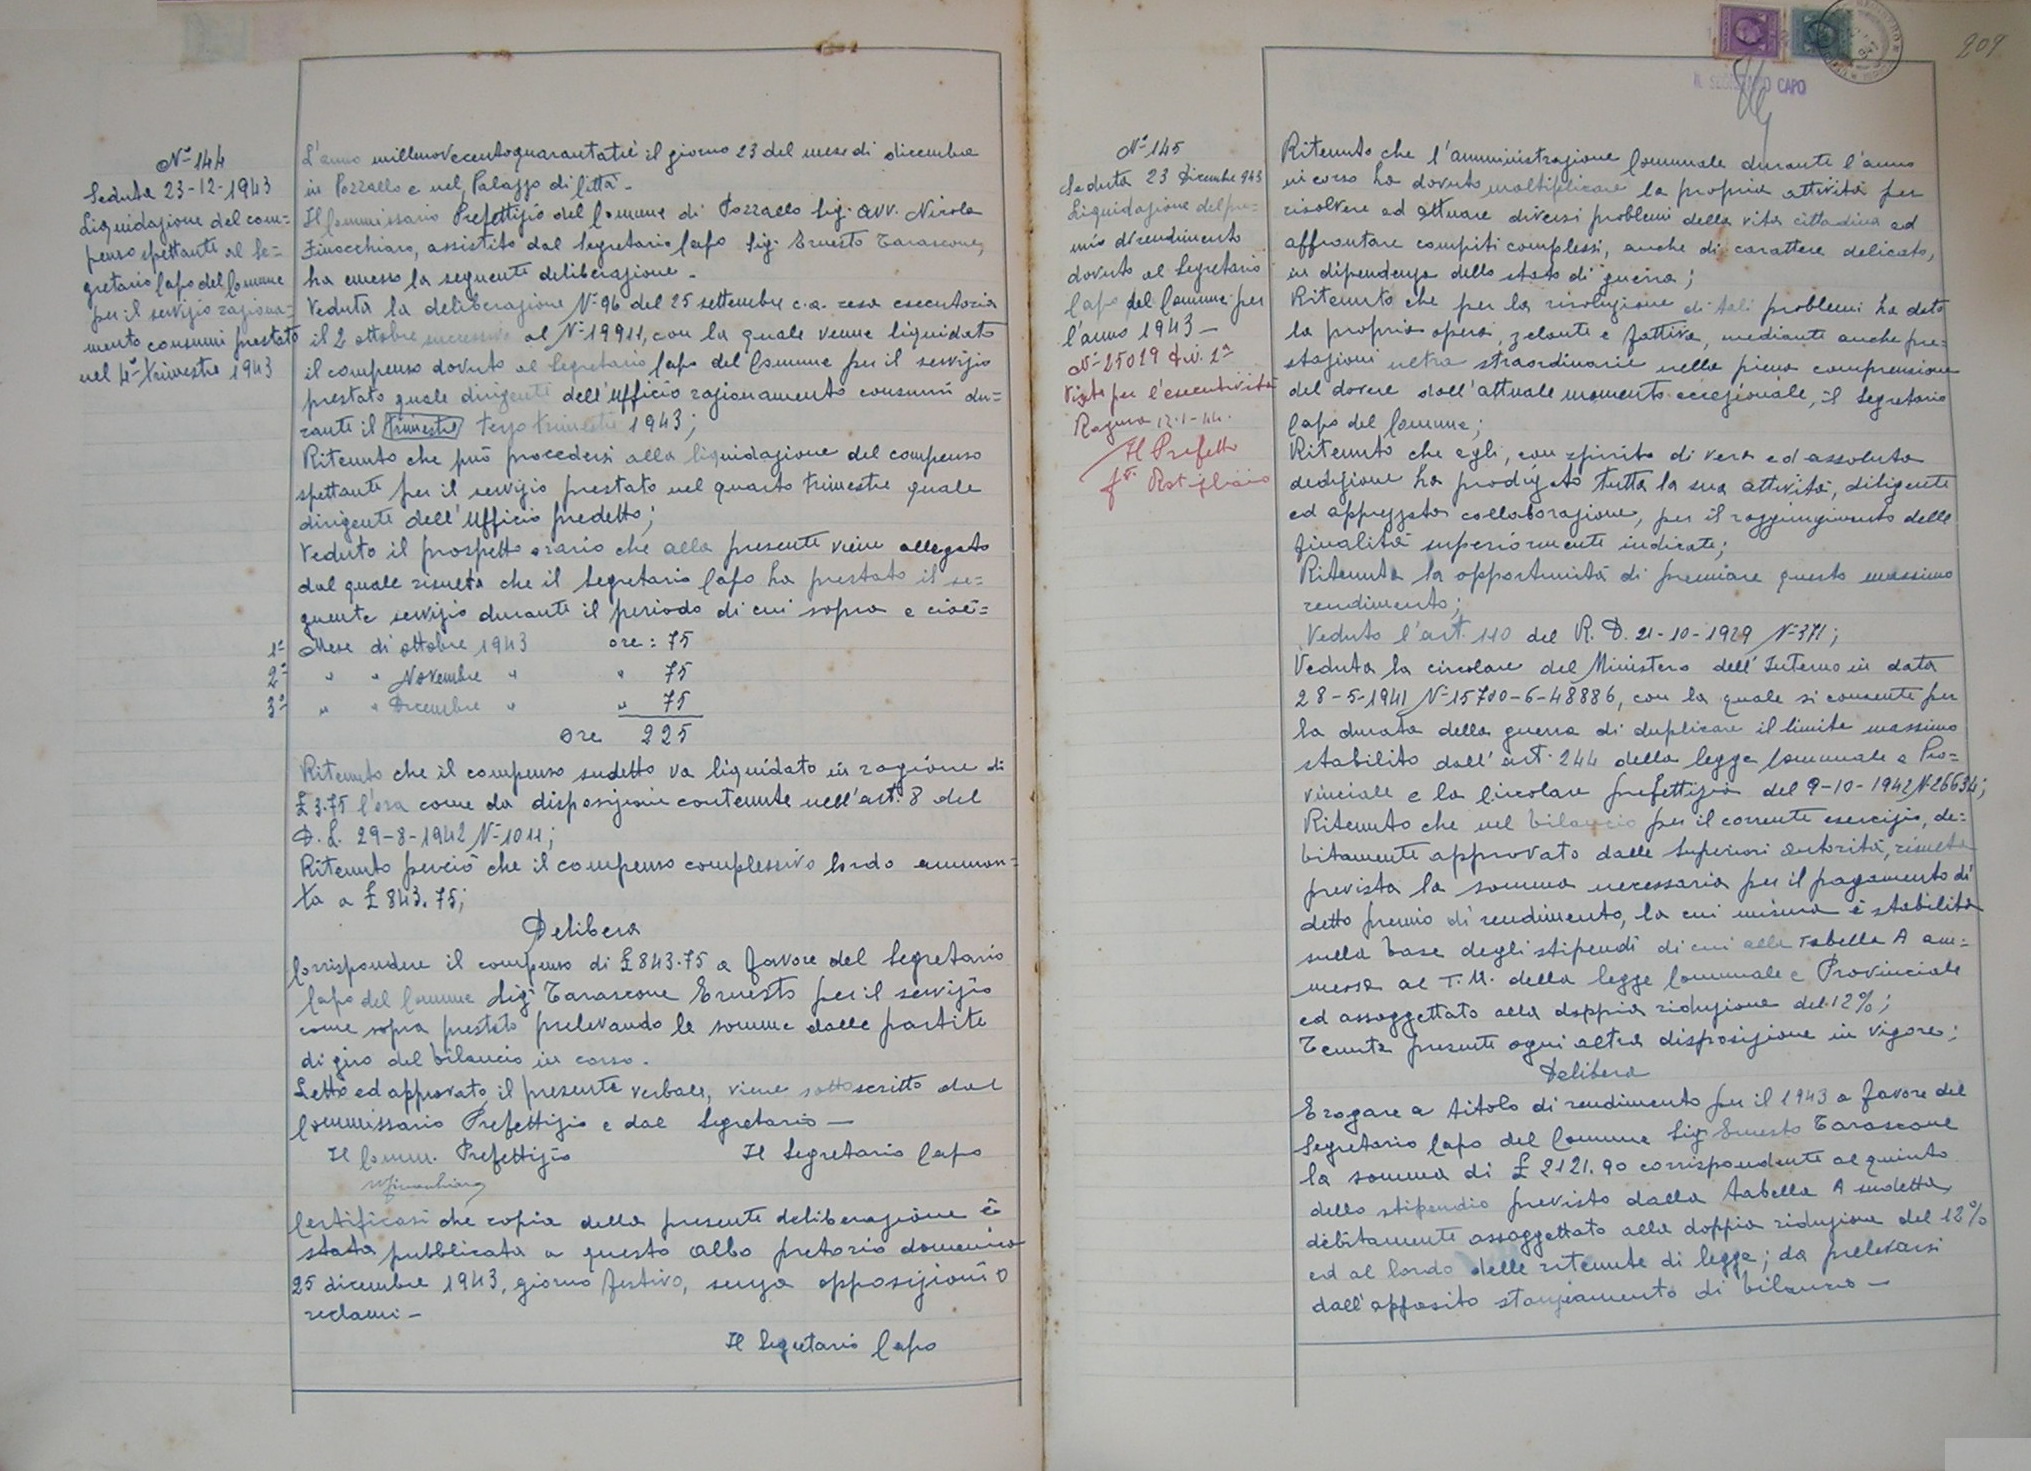 Nº 144
Seduta 23-12-1943
Liquidazione del com=
penso spettante al Se=
gretario Capo del Comune
per il servizio raziona=
mento consumi prestato
nel 4º trimestre 1943
L'anno millenovecentoquarantatrè il giorno 23 del mese di dicembre
in Pozzallo e nel Palazzo di Città.-
Il Commissario Prefettizio del Comune di Pozzallo Sig. Avv. Nicola
Finocchiaro, assistito dal Segretario Capo Sig. Ernesto Tarascone,
ha emesso la seguente deliberazione.-
Veduta la deliberazione Nº 96 del 25 settembre c.a. resa esecutoria
il 2 ottobre successivo al Nº 19911, con la quale venne liquidato
il compenso dovuto al Segretario Capo del Comune per il servizio
prestato quale dirigente dell'Ufficio razionamento consumi du=
rante il trimestre terzo trimestre 1943;
Ritenuto che può procedersi alla liquidazione del compenso
spettante per il servizio prestato nel quarto trimestre quale
dirigente dell'Ufficio predetto;
Veduto il prospetto orario che alla presente viene allegato
dal quale risulta che il Segretario Capo ha prestato il se=
guente servizio durante il periodo di cui sopra e cioè:=
1º Mese di ottobre 1943 ore: 75
2º " " Novembre " " 75
3º " " Dicembre " " 75
Ore 225
Ritenuto che il compenso sudetto va liquidato in ragione di
£ 3.75 l'ora come da disposizioni contenute nell'art. 8 del
D. L. 29-8-1942 Nº 1011;
Ritenuto perciò che il compenso complessivo lordo ammon=
ta a £ 843.75;
Delibera
Corrispondere il compenso di £ 843.75 a favore del Segretario
Capo del Comune Sig. Tarascone Ernesto per il servizio
come sopra prestato prelevando le somme dalle partite
di giro del bilancio in corso.
Letto ed approvato il presente verbale, viene sottoscritto dal
Commissario Prefettizio e dal Segretario —
Il Comm. Prefettizio Il Segretario Capo
Certificasi che copia della presente deliberazione è
stata pubblicata a questo albo pretorio domenica
25 dicembre 1943, giorno festivo, senza opposizioni o
reclami -
Il Segretario Capo
IL SEGRETARIO CAPO
Nº 145
Seduta 23 Dicembre 943
Liquidazione del pre=
mio di rendimento
dovuto al Segretario
Capo del Comune per
l'anno 1943 —
Nº 25019 Div. 2ª
Visto per l'esecutività
Ragusa 12-1-44.
Il Prefetto
Ritenuto che l'amministrazione Comunale durante l'anno
in corso ha dovuto moltiplicare la propria attività per
risolvere ed attuare diversi problemi della vita cittadina ed
affrontare compiti complessi, anche di carattere delicato,
in dipendenza dello stato di guerra;
Ritenuto che per la risoluzione di tali problemi ha dato
la propria opera, zelante e fattiva, mediante anche pre=
stazioni ultra straordinarie nella piena comprensione
del dovere dall'attuale momento eccezionale, il Segretario
Capo del Comune;
Ritenuto che egli, con spirito di vera ed assoluta
dedizione ha prodigato tutta la sua attività, diligente
ed apprezzata collaborazione, per il raggiungimento delle
finalità superiormente indicate;
Ritenuta la opportunità di premiare questo massimo
rendimento;
Veduto l'art. 110 del R. D. 21-10-1929 Nº 371;
Veduta la circolare del Ministero dell'Interno in data
28-5-1941 Nº 15700-6-48886, con la quale si consente per
la durata della guerra di duplicare il limite massimo
stabilito dall'art. 244 della legge Comunale e Pro=
vinciale e la Circolare prefettizia del 9-10-1942 Nº 26634;
Ritenuto che nel bilancio per il corrente esercizio, de=
bitamente approvato dalle Superiori autorità, risulta
prevista la somma necessaria per il pagamento di
detto premio di rendimento, la cui misura è stabilita
sulla base degli stipendi di cui alla Tabella A an=
nessa al T.U. della legge Comunale e Provinciale
ed assoggettato alla doppia riduzione del 12%;
Tenuta presente ogni altra disposizione in vigore;
Delibera
Erogare a titolo di rendimento per il 1943 a favore del
Segretario Capo del Comune Sig. Ernesto Tarascone
la somma di £ 2121.90 corrispondente al quinto
dello stipendio previsto dalla tabella A sudetta,
debitamente assoggettato alla doppia riduzione del 12%
ed al lordo delle ritenute di legge; da prelevarsi
dall'apposito stanziamento di bilancio —